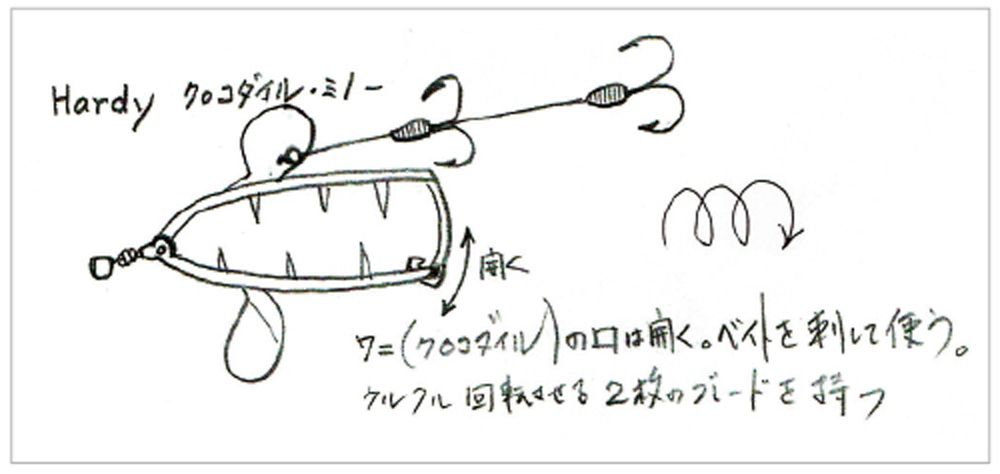 Hardy クロコダイル・ミノー
開く
ワニ(クロコダイル)の口は開く。ベイトを刺して使う。
クルクル回転させる2枚のブレードを持つ